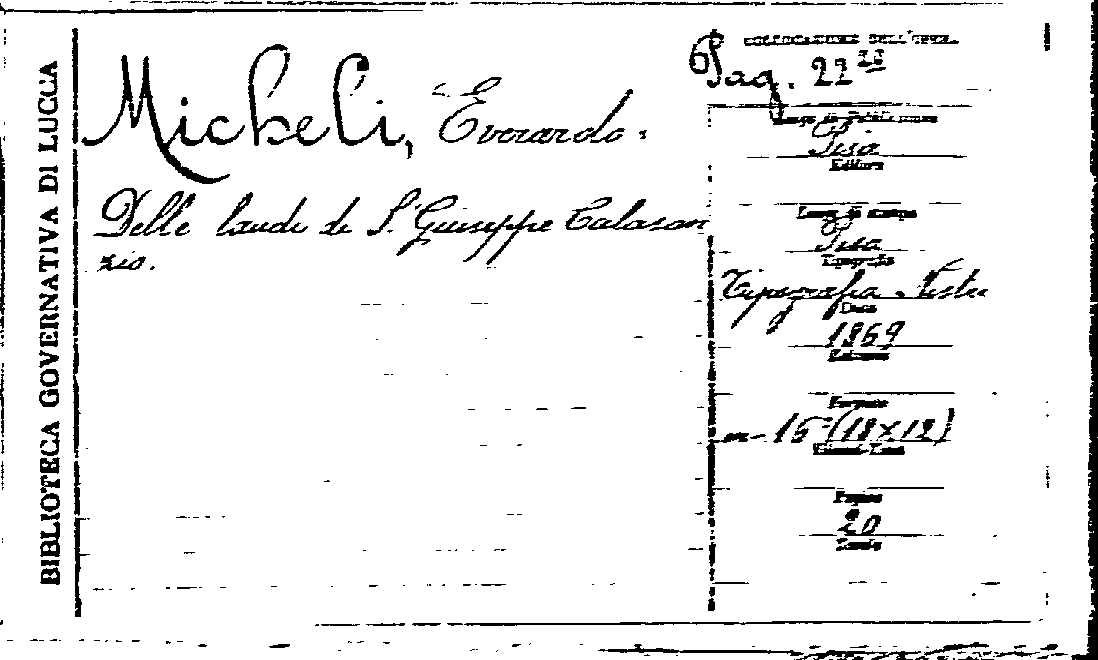 BIBLIOTECA GOVERNATIVA DI LUCCA
Micheli, Everardo.
Delle laudi di S. Giuseppe Calasan
zio.
COLLOCAZIONE DELL'OPERA
Pag. 22
Luogo di Pubblicazione
Pisa
Editore
Luogo di stampa
Pisa
Tipografia
Tipografia Nistri
Data
1869
Volumi
Formato
in-16° (18x12)
Pagine
20
Tavole